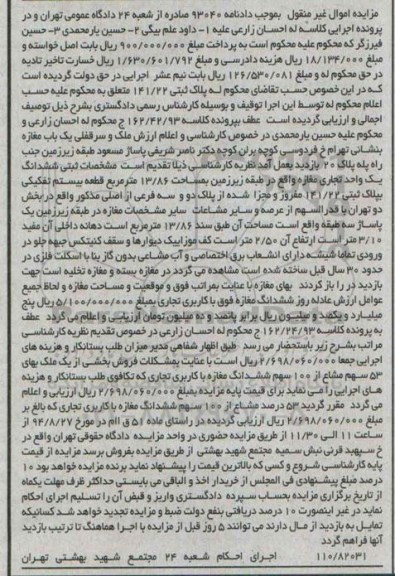 مزایده اموال غیر منقول بموجب دادنامه ۹۳۰۴۰ صادره از شعبه ۲۴ دادگاه عمومی تهران و در
پرونده اجرایی کلاسه له احسان زارعی علیه ۱- داود علم بیگی ۲- حسین یارمحمدی ۳- حسین
فیرزگر که محکوم علیه محکوم است به پرداخت مبلغ ۹۰۰/۰۰۰/۰۰۰ ریال بابت اصل خواسته و
مبلغ ۱۸/۱۳۴/۰۰۰ ریال هزینه دادرسی و مبلغ ۱/۶۳۰/۶۰۱/۷۹۲ ریال خسارت تاخیر تادیه
در حق محکوم له و مبلغ ۱۲۶/۵۳۰/۰۸۱ ریال بابت نیم عشر اجرایی در حق دولت گردیده است
که در این خصوص حسب تقاضای محکوم له پلاک ثبتی ۱۴۱/۲۲ متعلق به محکوم علیه حسب
اعلام محکوم له توسط این اجرا توقیف و بوسیله کارشناس رسمی دادگستری بشرح ذیل توصیف
اجمالی و ارزیابی گردیده است عطف بپرونده کلاسه ۱۶۲/۴۲/۹۳ ج محکوم له احسان زارعی و
محکوم علیه حسین یارمحمدی در خصوص کارشناسی و اعلام ارزش ملک و سرقفلی یک باب مغازه
بنشانی تهران خ فردوسی کوچه برلن کوچه دکتر ناصر شریفی پاساژ مسعود طبقه زیرزمین جنب
راه پله پلاک ۲۰ بازدید بعمل آمد نظریه کارشناسی ذیلا تقدیم است مشخصات ثبتی ششدانگ
یک واحد تجاری مغازه واقع در طبقه زیرزمین بمساحت ۱۳/۸۶ مترمربع قطعه بیستم تفکیکی
بپلاک ثبتی ۱۴۱/۲۲ مفروز و مجزا شده از پلاک دو و سه فرعی از اصلی مذکور واقع در بخش
دو تهران با قدر السهم از عرصه و سایر مشاعات سایر مشخصات مغازه در طبقه زیرزمین یک
پاساژ سه طبقه واقع است مساحت آن طبق سند ۱۳/۸۶ مترمربع است دهانه داخلی آن مفید
۳/۱۰ متر است ارتفاع آن ۲/۵۰ متر است کف موزاییک دیوارها و سقف کنیتکس جبهه جلو در
ورودی تماما شیشه دارای انشعاب برق اختصاصی و آب مشاعی بدون گاز بنا با اسکلت فلزی در
حدود ۳۰ سال قبل ساخته شده است مشاهده می گردد در مغازه بسته و مغازه تخلیه است جهت
بازدید در را باز کردند بهای مغازه با عنایت بمراتب فوق و موقعیت و مساحت مغازه و لحاظ جمیع
عوامل ارزش عادله روز ششدانگ مغازه فوق با کاربری تجاری بمبلغ ۵/۱۰۰/۰۰۰/۰۰۰ ریال پنج
میلیارد و یکصد و میلیون ریال برابر پانصد و ده میلیون تومان ارزیابی و اعلام می گردد عطف
به پرونده کلاسه ۱۶۲/۲۴/۹۳ ج محکوم له احسان زارعی در خصوص تقدیم نظریه کارشناسی
مراتب بشرح زیر باستحضار می رسد طبق اظهار شفاهی مدیر میزان طلب بستانکار و هزینه های
اجرایی جمعا ۲/۶۹۸/۰۶۰/۰۰۰ ریال است با عنایت بمشکلات فروش بخشی از یک ملک بهای
۵۳ سهم مشاع از ۱۰۰ سهم ششدانگ مغازه با کاربری تجاری که تکافوی طلب بستانکار و هزینه
های اجرایی را می نماید برای قیمت پایه مزایده بمبلغ ۲/۶۹۸/۰۶۰/۰۰۰ ریال ارزیابی و اعلام
می گردد مقرر گردید ۵۳ درصد مشاع از ۱۰۰ سهم ششدانگ مغازه با کاربری تجاری که بالغ بر
مبلغ ۲/۶۹۸/۰۶۰/۰۰۰ ریال ارزیابی گردیده در راستای ماده ۵۱ ق اام در مورخ ۹۴/۸/۲۷ از
ساعت ۱۱ الی ۱۱/۳۰ از طریق مزایده حضوری در واحد مزایده دادگاه حقوقی تهران واقع در
خ سپهبد قرنی نبش سمیه مجتمع شهید بهشتی از طریق مزایده بفروش برسد مزایده از قیمت
پایه کارشناسی شروع و کسی که بالاترین قیمت را پیشنهاد نماید برنده مزایده خواهد بود ۱۰
درصد مبلغ پیشنهادی فی المجلس از خریدار اخذ و الباقی می بایستی حداکثر ظرف مهلت یکماه
از تاریخ برگزاری مزایده بحساب سپرده دادگستری واریز و قبض آن را تسلیم اجرای احکام
نماید در غیر اینصورت ۱۰ درصد دریافتی بنفع دولت ضبط و مزایده تجدید خواهد شد کسانیکه
تمایل به بازدید از مال دارند می توانند ۵ روز قبل از مزایده با اجرا هماهنگ تا ترتیب بازدید
آنها فراهم گردد
۱۱۰/۸۲۰۳۱ اجرای احکام شعبه ۲۴ مجتمع شهید بهشتی تهران